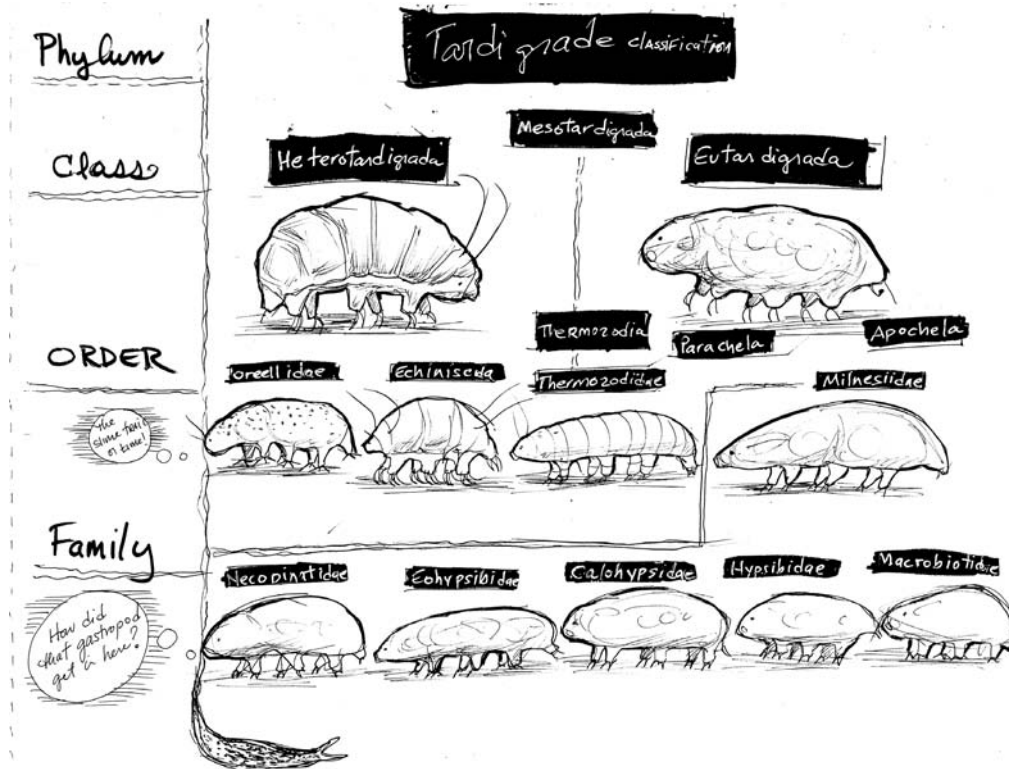 Phylum
Tardigrade classification
Class
Heterotardigrada
Mesotardigrada
Eutardigrada
ORDER
Thermozodia
Parachela
Apochela
oreellidae
Echiniscida
Thermozodiidae
Milnesiidae
The
slime trail
of time!
Family
Necopinatidae
Eohypsibidae
Calohypsidae
Hypsibidae
Macrobiotidae
How did
that gastropod
get in here?